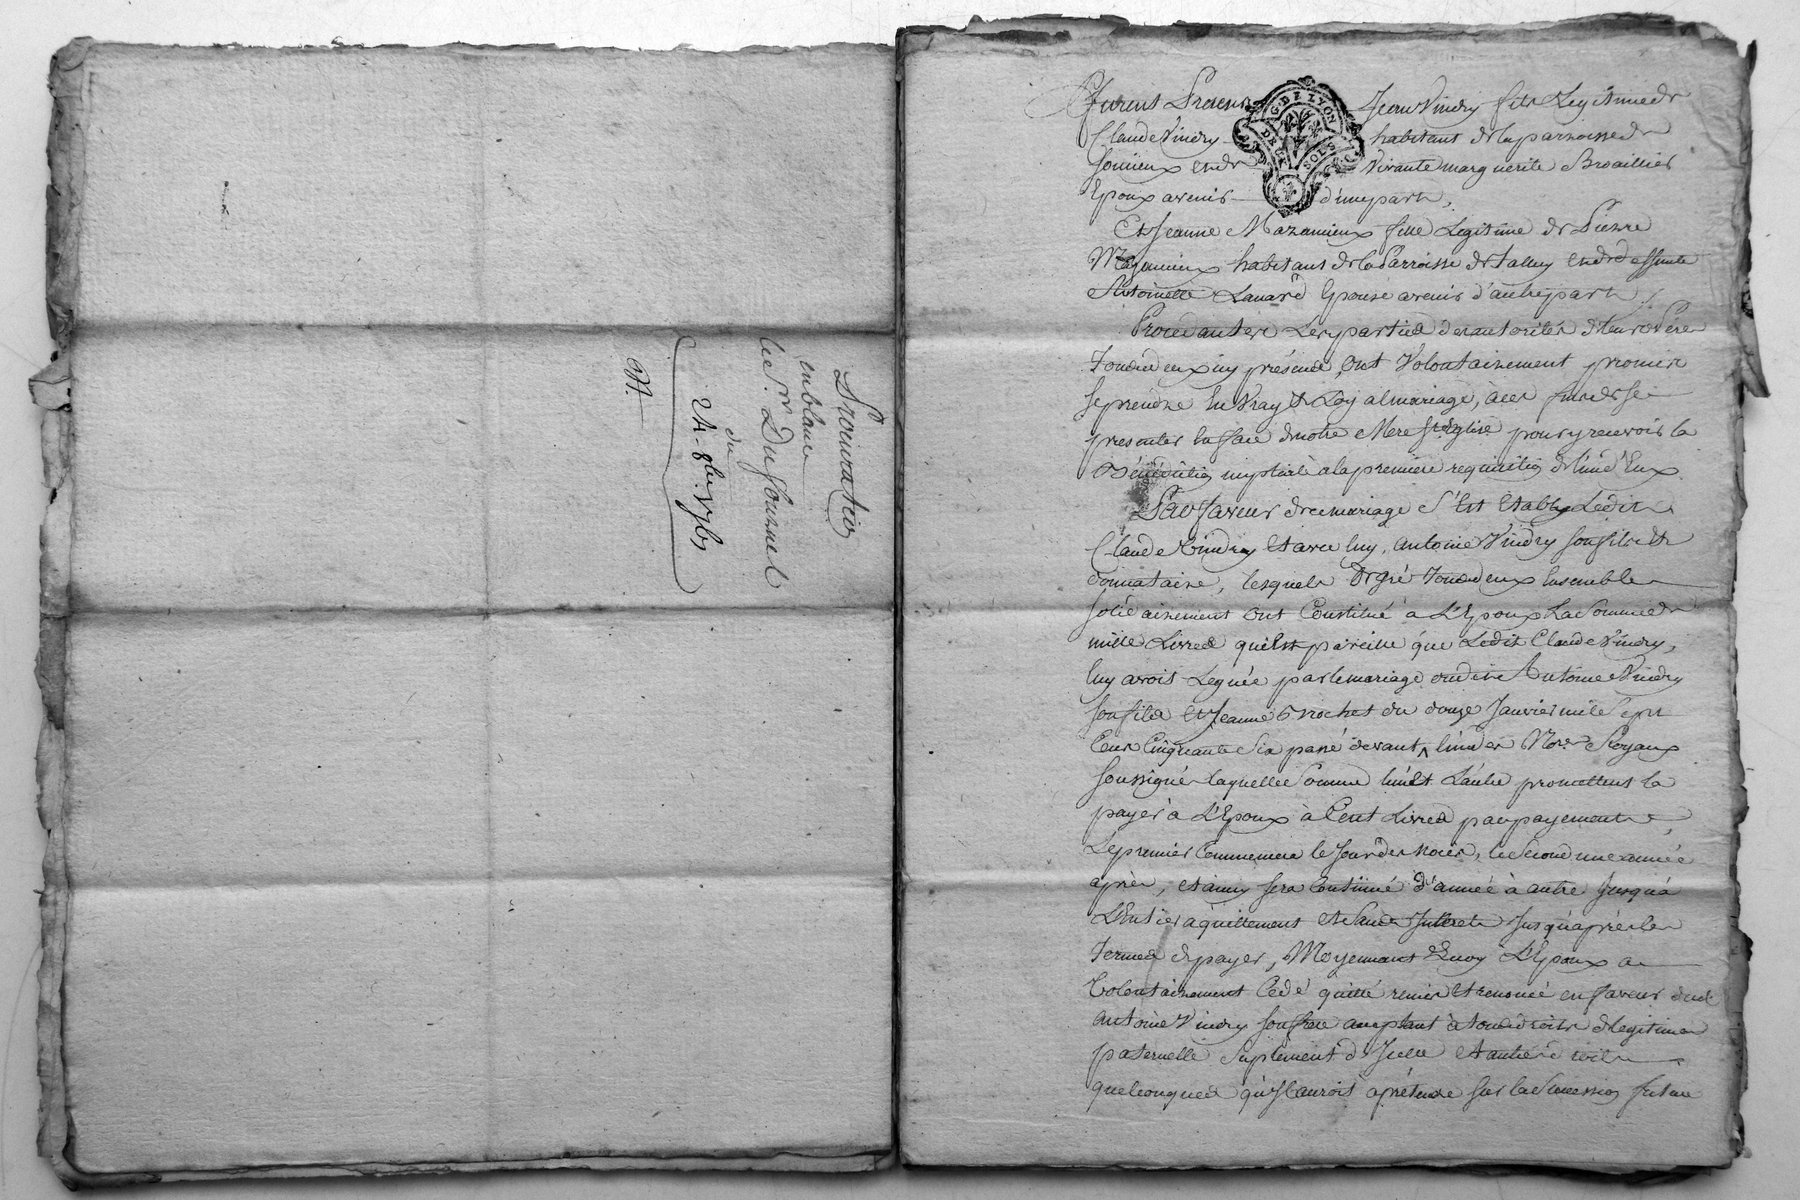 Procuration
en blanc
le Sr. Dufournel
du
24. 8bre. 1769
M.
G. DE LYON
DEUX SOLS
Furent Presens Jean Vindry fils Legitime de
Claude Vindry habitant de la parroisse de
vivante marguerite Broaillier
Epoux avenir d'une part,
Et Jeanne Mazamieux fille Legitime de Pierre
Mazamieux habitant de la Parroisse de Talluy et de deffunte
Antoinette Epouse avenir d'autre part
Lesparties de l'autorité de leurs Peres
Tous deux icy présens, ont Volontairement promis
se prendre en Vray & Loy al mariage, à ces fins de se
presenter en face de notre Mere Ste Eglise pour y recevoir la
Bénédiction nuptiale à la premiere requisition de l'un d'Eux
En faveur de ce mariage s'Est Etably Ledit
Claude Vindry Et avec luy, Antoine Vindry son fils &
donnataire, lesquels de gré Tous deux Ensemble
solidairement ont Constitué à L'Epoux La Somme de
mille Livres qu'Est pareille que Ledit Claude Vindry,
luy avoit Leguée par le mariage dudit Antoine Vindry
son fils Et Jeanne Brochet du douze Janvier mil Sept
Cent Cinquante Six passé devant l'un des Nores Royaux
soussignés laquelle Somme l'un & L'autre promettent la
payer à L'Epoux à Cent Livres par payement
Le premier Commencera le Jour des noces, le Second une année
après, et ainsy sera Continué d'année à autre Jusqu'à
L'Entier aquittement et Sans Interets Jusqu'après les
Termes de payer, Moyennant Quoy L'Epoux a
Volontairement Cédé quitté remis Et renoncé en faveur dudt
Antoine Vindry son frere acceptant à tous droits de legitime
paternelle Suplement d'Icelle et autres droits
quelconques qu'Il auroit à prétendre sur la Succession future